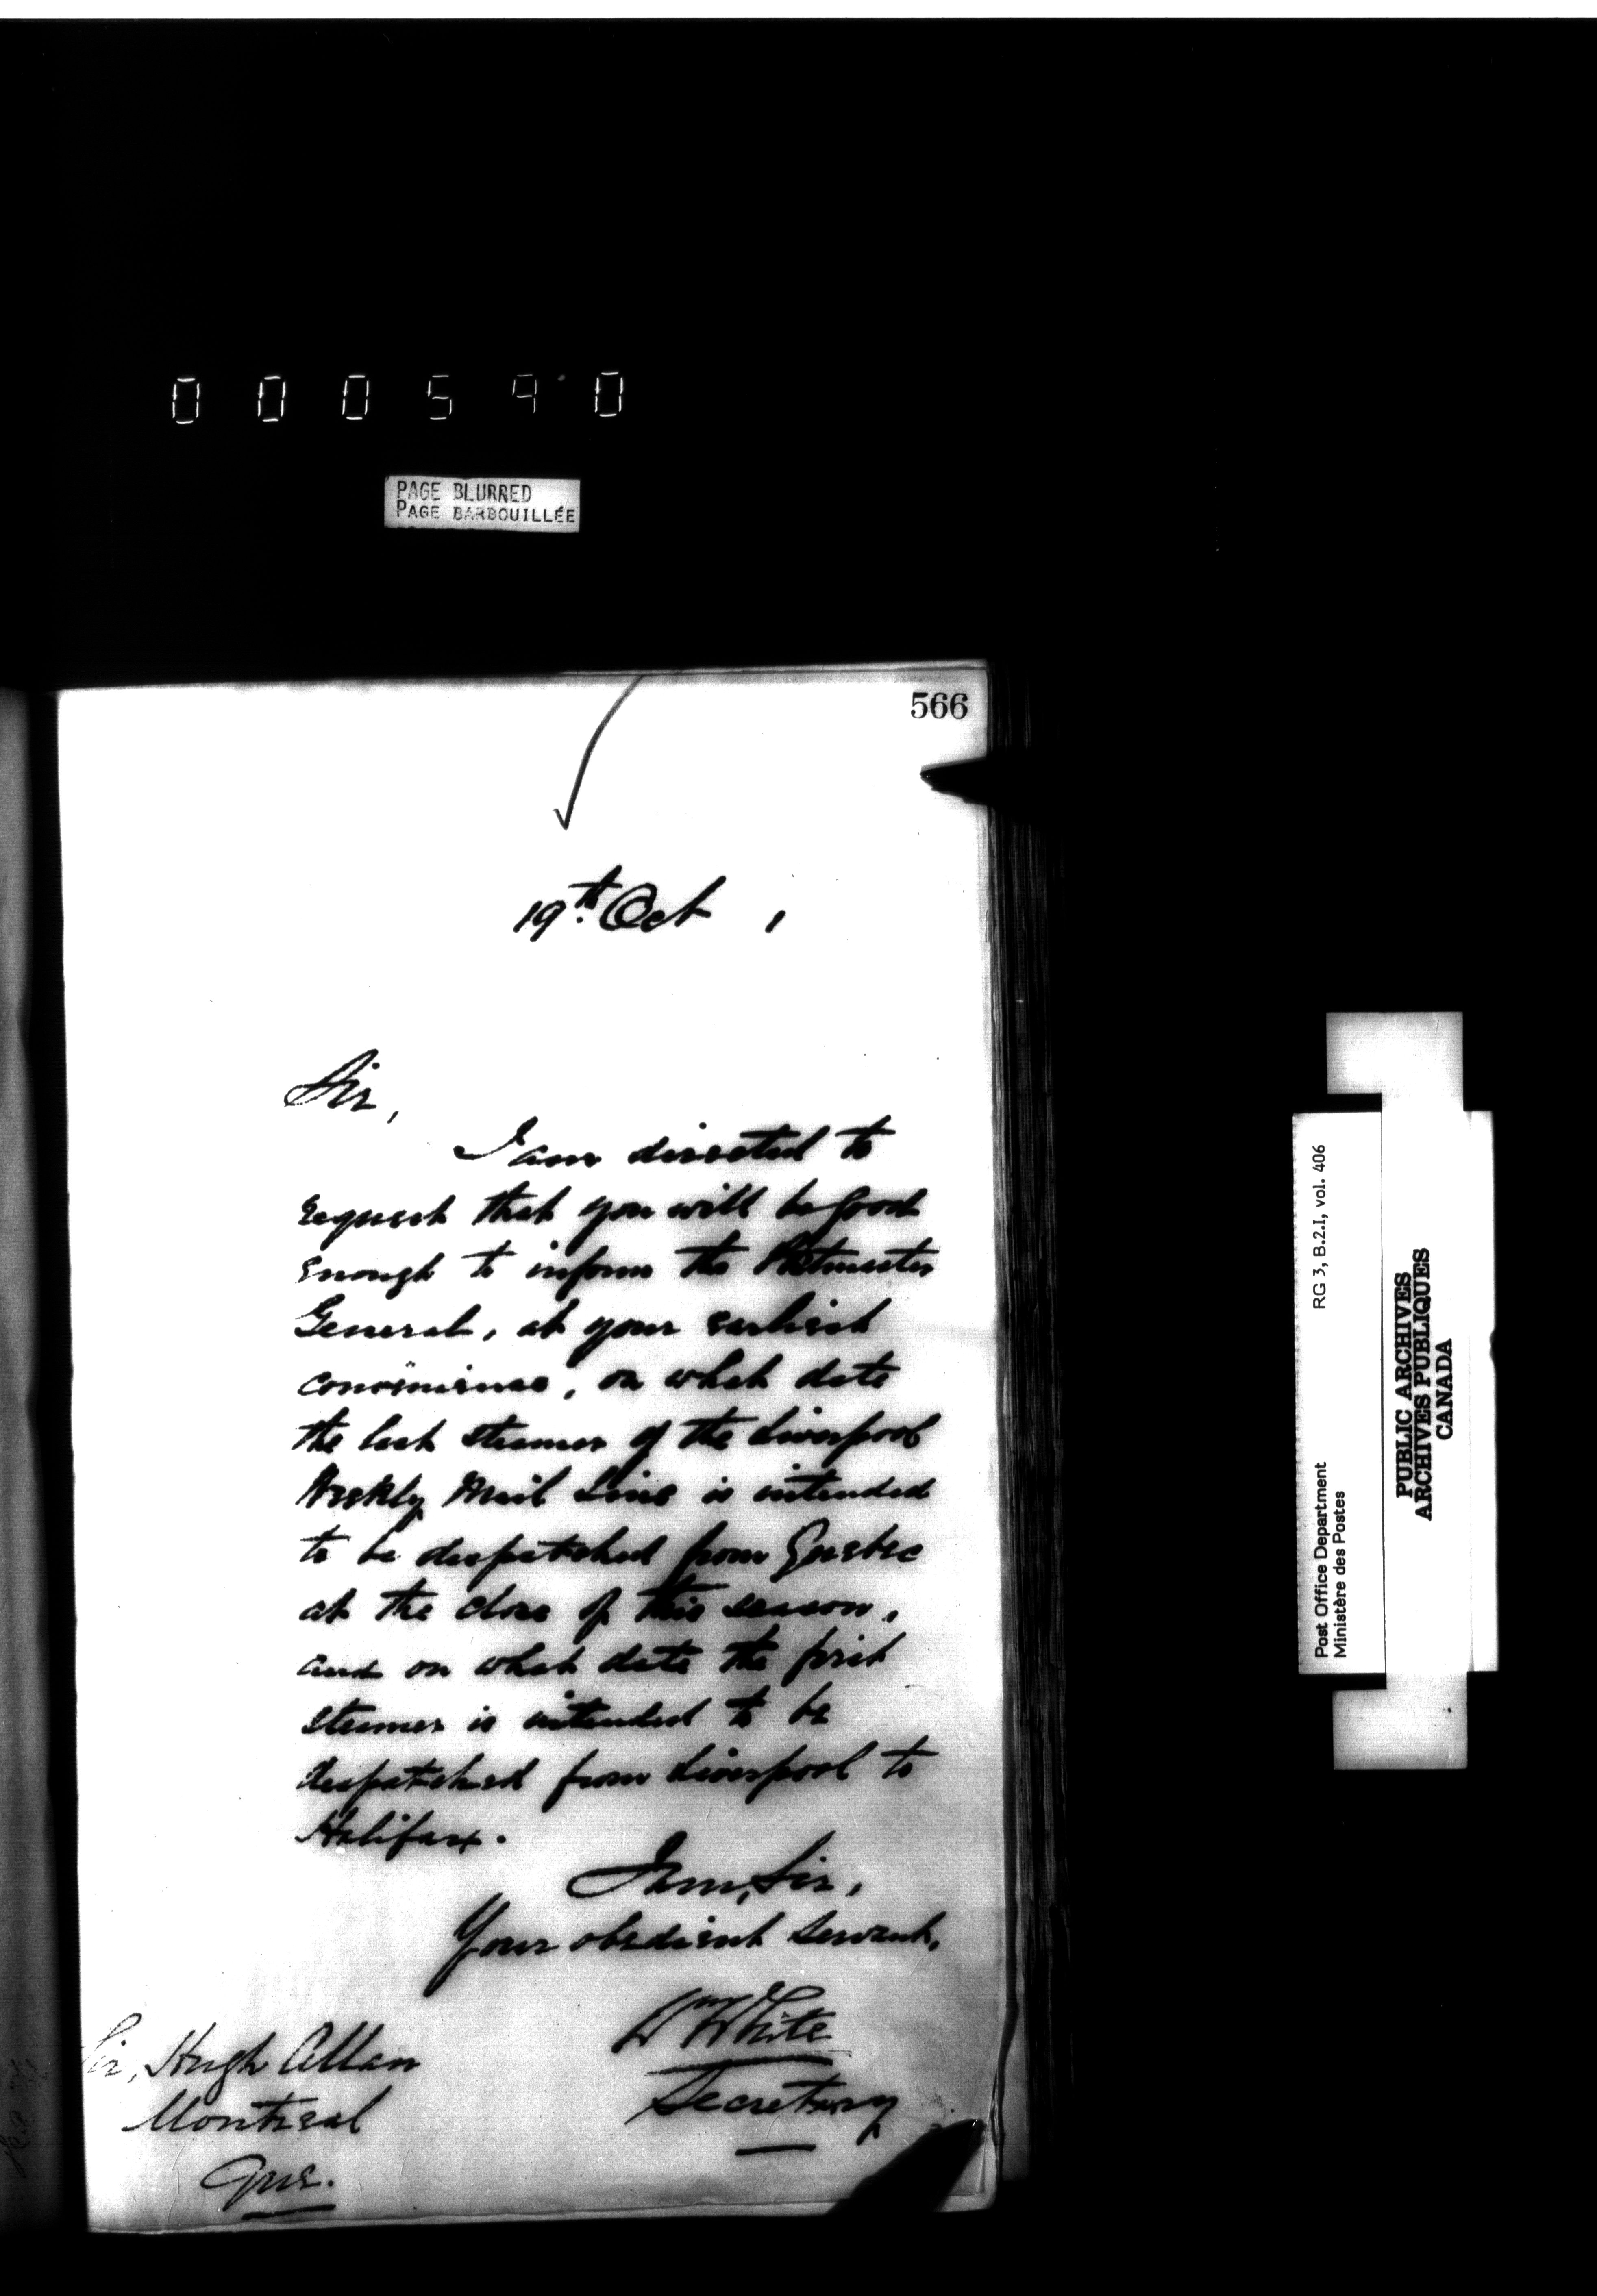 000590
PAGE BLURRED
PAGE BARBOUILLÉE
566
19th Oct 1
Sir,
I am directed to
request that you will be good
enough to inform the Postmaster
General, at your earliest
convenience, on what date
the last steamer of the Liverpool
Weekly Mail Line is intended
to be despatched from Quebec
at the close of this season,
and on what date the first
steamer is intended to be
despatched from Liverpool to
Halifax.
I am, Sir,
Your obedient Servant,
Wm White
Secretary
Sir, Hugh Allan
Montreal
Que.
RG 3, B.2.I, vol. 406
Post Office Department
Ministère des Postes
PUBLIC ARCHIVES
ARCHIVES PUBLIQUES
CANADA